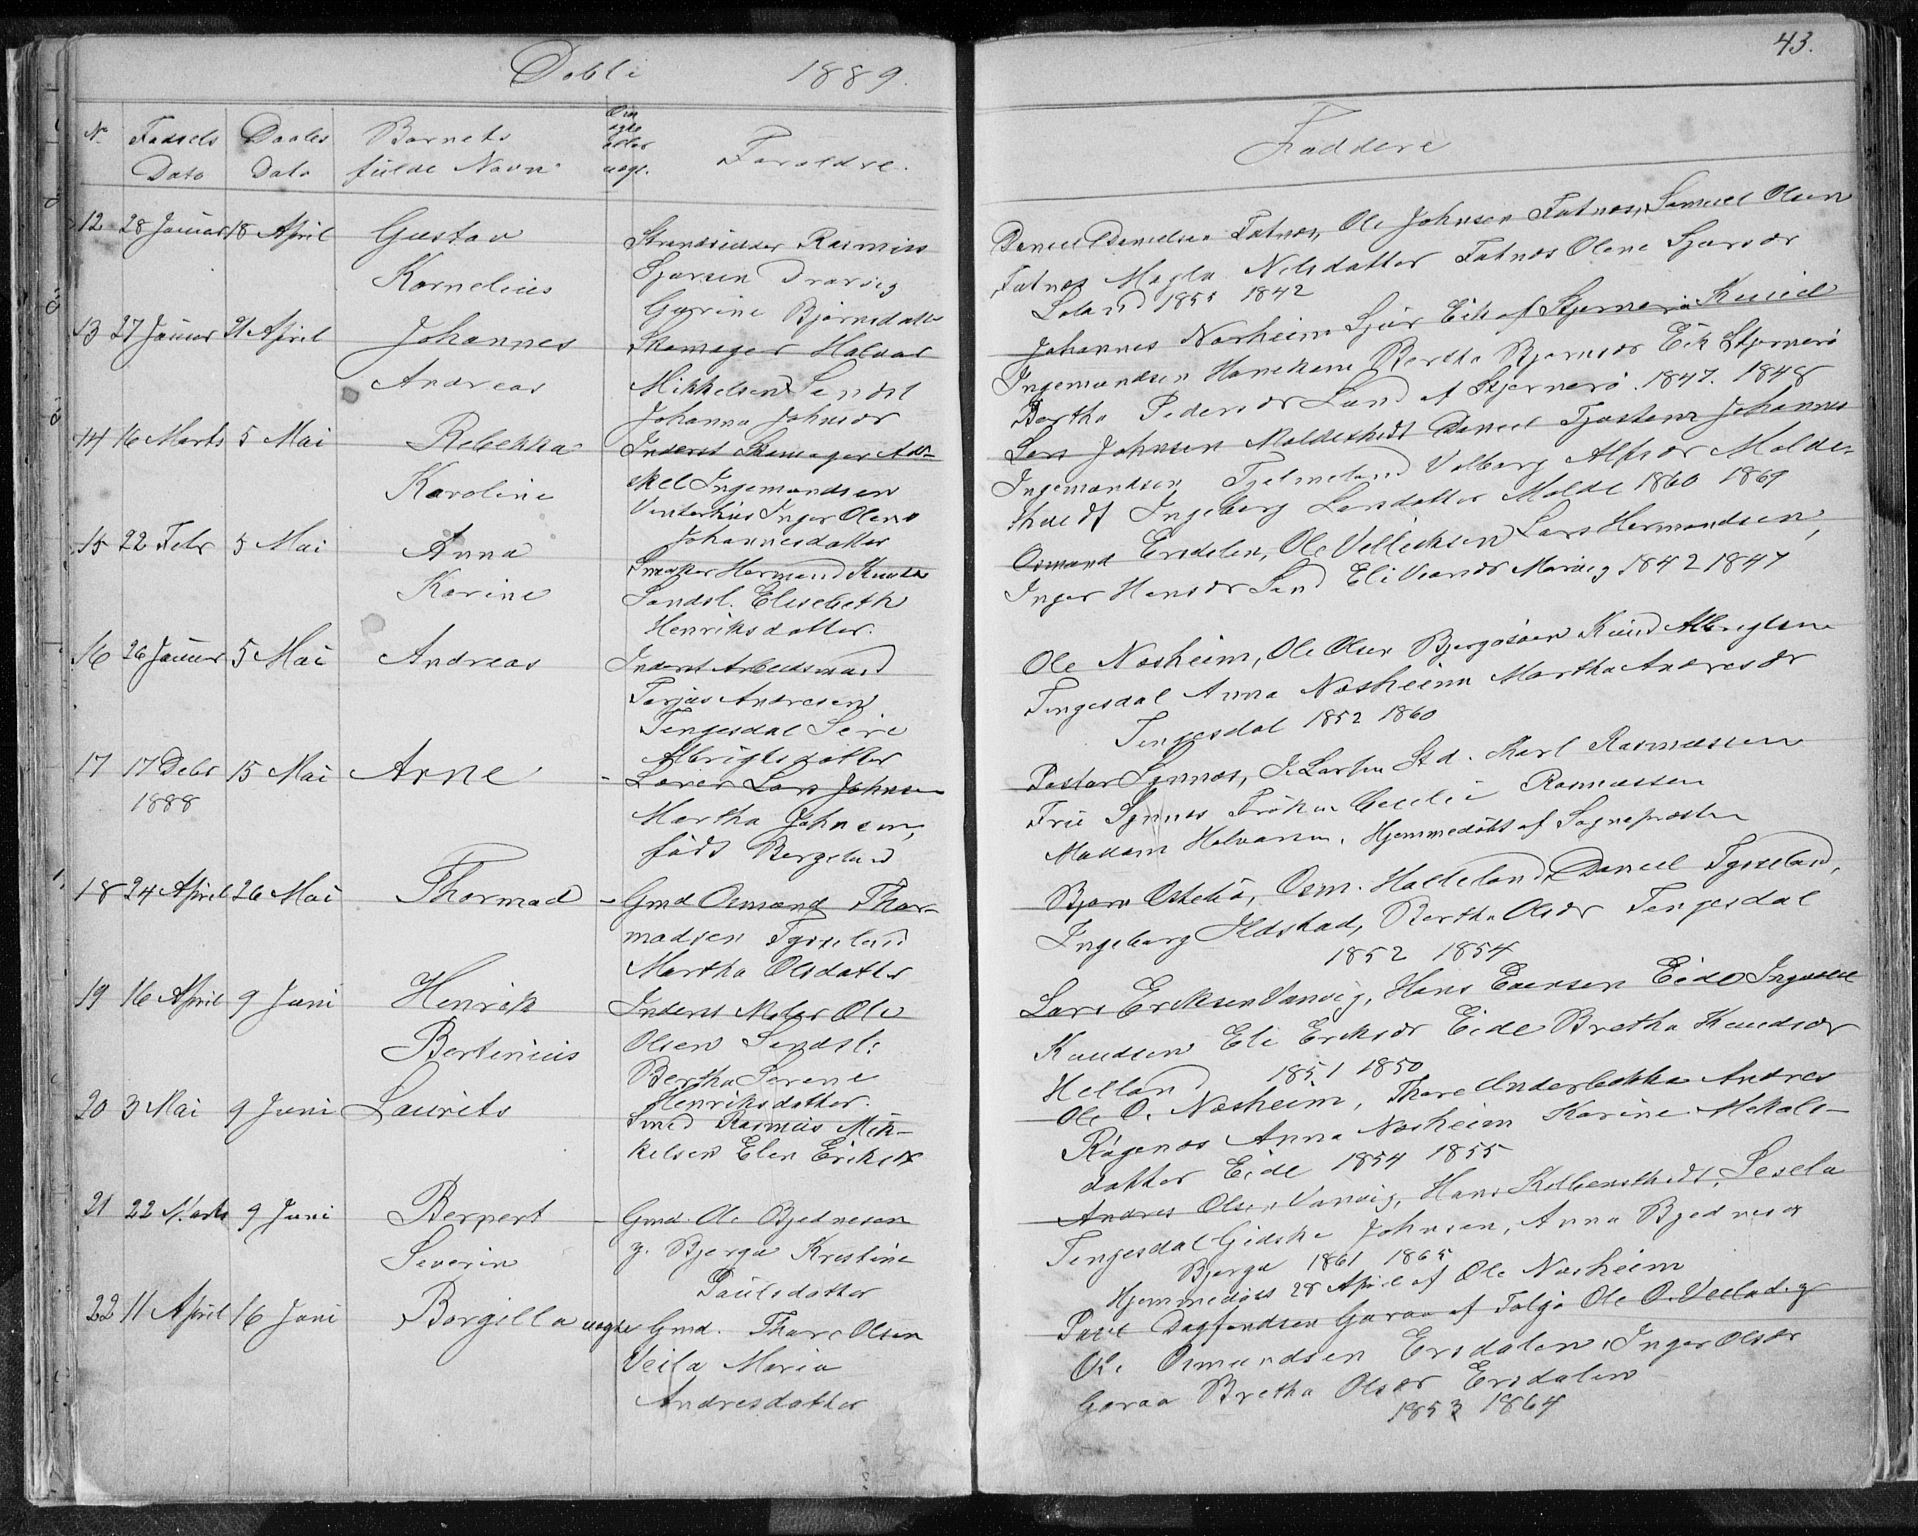 Døbte 1889.
43.
No Fødsels Daabs Barnets Om ægte eller uægt. Forældre.
Dato Dato fulde Navn
Faddere
12 28 Januar 18 April Gustav Kornelius
Strandsidder Rasmus
Sjursen Drarvig
Gurine Bjørnsdatter
Daniel Danielsen Fatnes, Ole Johnsen Fatnes, Samuel Olsen
Fatnes Magla Nilsdatter Fatnes Olene Sjursdr
Loland 1855 1842
13 27 Januar 21 April Johannes Andreas
Skomager Halvor
Mikkelsen Sandsl
Johanna Johnsdr
Johannes Norheim Sjur Eik af Stjernerø Knud
Ingemundsen Hanekam Bertha Bjørnsdr Eik Stjernerø
Bertha Pedersdr Sand af Stjernerø. 1847. 1848
14 16 Marts 5 Mai Rebekka Karoline
Inderst Skomager Ad-
skel Ingemundsen
Vinterhus Inger Olene
Johannesdatter
Lars Johnsen Moldesthedt Daniel Tjøstenr Johannes
Ingemundsen Tjelmeland Valborg Alfsdr Molde-
sthedt Ingeborg Larsdatter Molde 1860 1869
15 22 Febr 5 Mai Anna Karine
Snedker Hermand Knuts
Sandsl. Elisebeth
Henriksdatter.
Osmund Ersdalen, Ole Velliksen Lars Hermandsen,
Inger Hansdr Sand Eli Marvig 1842 1847
16 26 Januar 5 Mai Andreas
Inderst Arbeidsmand
Torjus Andresen
Tengesdal Siri
Albrigtsdatter
Ole Næsheim, Ole Olsen Bjergøsøen Knud Albrigtsen
Tengesdal Anna Næsheim Martha Andresdr
Tengesdal 1852 1860
17 17 Debr 1888 15 Mai Arne
- Lærer Lars Johnsen
Martha Johnsen,
født Bergeland
Pastor Synnes, I. Larsen Sd. Karl Rasmussen
Frü Synnes Frøken Cecilie Rasmussen
Madam Halvarsen, Hjemmedøbt af Sognepresten
18 24 April 26 Mai Thormod
- Gmd Osmund Thor-
modsen Tysseland
Martha Olsdatter
Bjørn Østebø, Osm. Halleland, Daniel Tysseland,
Ingeborg Ilstad, Bertha Olsdr Tengesdal
1852 1854
19 16 April 9 Juni Henrik Bertinius
Inderst Maler Ole
Olsen Sandsl.
Bertha Serene
Henriksdatter.
Lars Eriksen Vanvig, Hans Evensen Eide Ingvald
Knudsen Eli Eriksdr Eide Bretha Knudsdr
Helland 1851 1850
20 3 Mai 9 Juni Laurits
Smed Rasmus Mik-
kelsen Elen Eriksdr
Ole O. Næsheim, Thore Underbakke Andres
Røgenes Anna Næsheim Karine Mikals-
datter Eide 1854 1855
21 22 Marts 9 Juni Berpert Severin
- Gmd Ole Bjednesen
y. Bjerga Kristine
Paulsdatter
Andres Olsen Vanvig, Hans Kolbensthedt, Sesela
Tengesdal Gidske Johnsen, Anna Bjednesdr
Bjerga 1861 1865
Hjemmedøbt 28 April af Ole Næsheim
22 11 April 16 Juni Borgilla uægte
Gmd. Thore Olsen
Veila Maria
Andresdatter
Povl Dagfindsen Garaa af Talgø Ole O. Veila d.y
Ole Osmundsen Ersdalen, Inger Olsdr
Garaa Bretha Olsdr Ersdalen
1853 1864